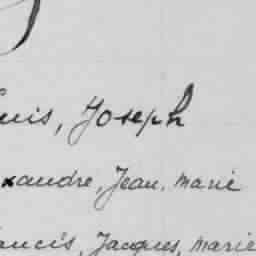 uis, Joseph
xandre, Jean, marie
ancis, Jacques, marie